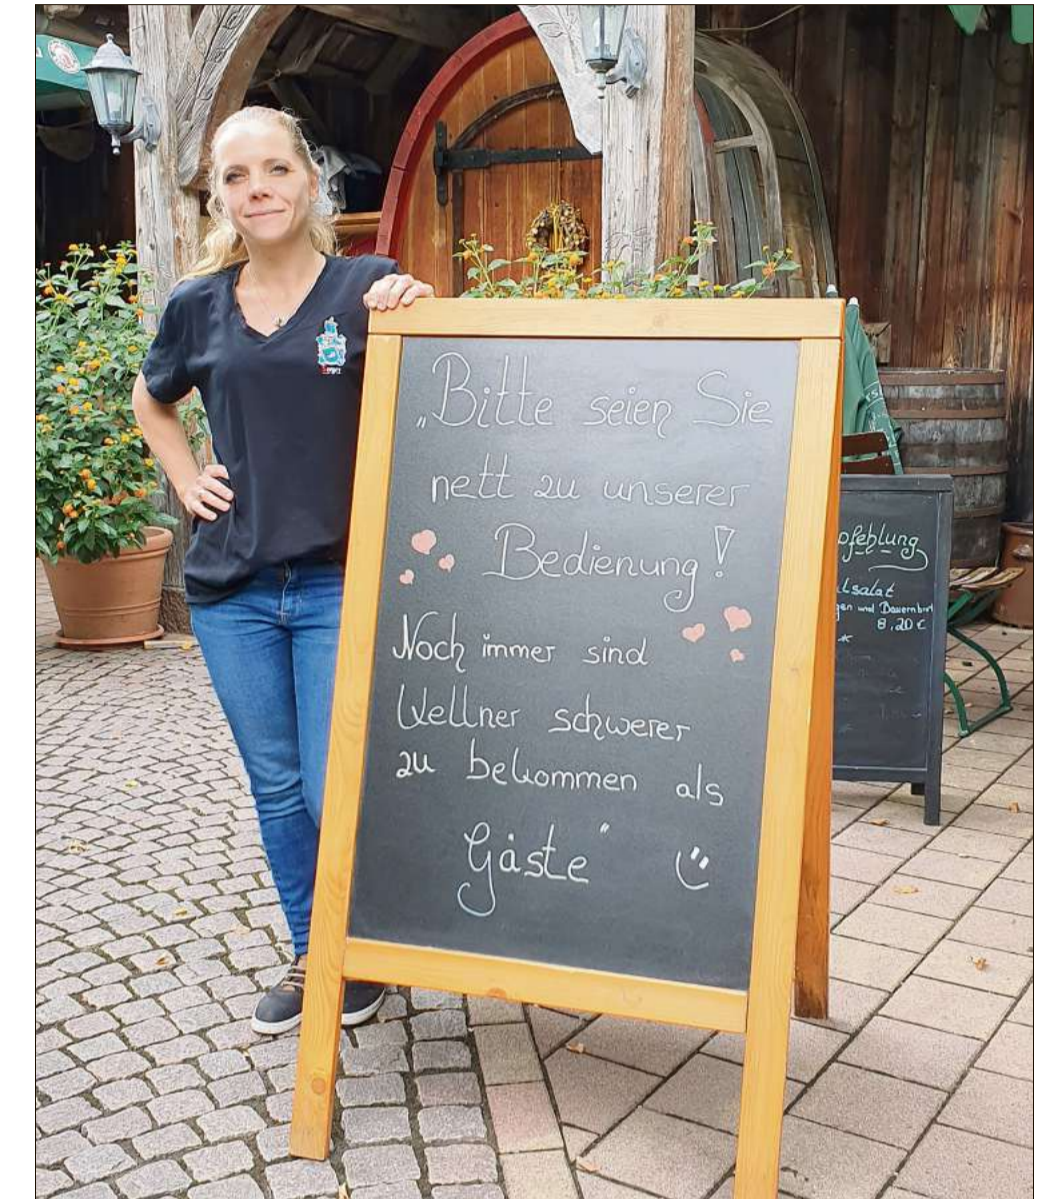 „Bitte seien Sie
nett zu unserer
Bedienung!
Noch immer sind
Kellner schwerer
zu bekommen als
Gäste"
pfehlung
salat
gen und Bauernbrot
8,20 €